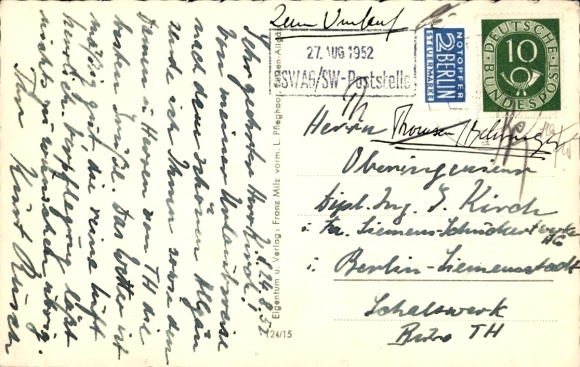 Zum Umlauf
27. AUG 1952
SSWAG/SW-Poststelle
NOTOPFER
2 BERLIN
STEUERMARKE
DEUTSCHE
10
BUNDESPOST
TH
Herrn
Oberingenieur
Dipl. Ing. J. Kirch
i. Fa. Siemens-Schuckertwerke
AG
i. Berlin-Siemensstadt
Schaltwerk
Büro TH
Eigentum u. Verlag: Franz Milz vorm. L. Pfleghaar
124/15
z. Z. 24.8.52
Sehr geehrter Herr Kirch!
Von meiner Urlaubsreise
nach dem schönen Allgäu
sende ich Ihnen sowie den
Damen u. Herren von TH die
besten Grüße. Das Wetter ist
mäßig, die reine Luft
herrl. u. Verpflegung läßt
nichts zu wünschen übrig.
Ihr Kurt